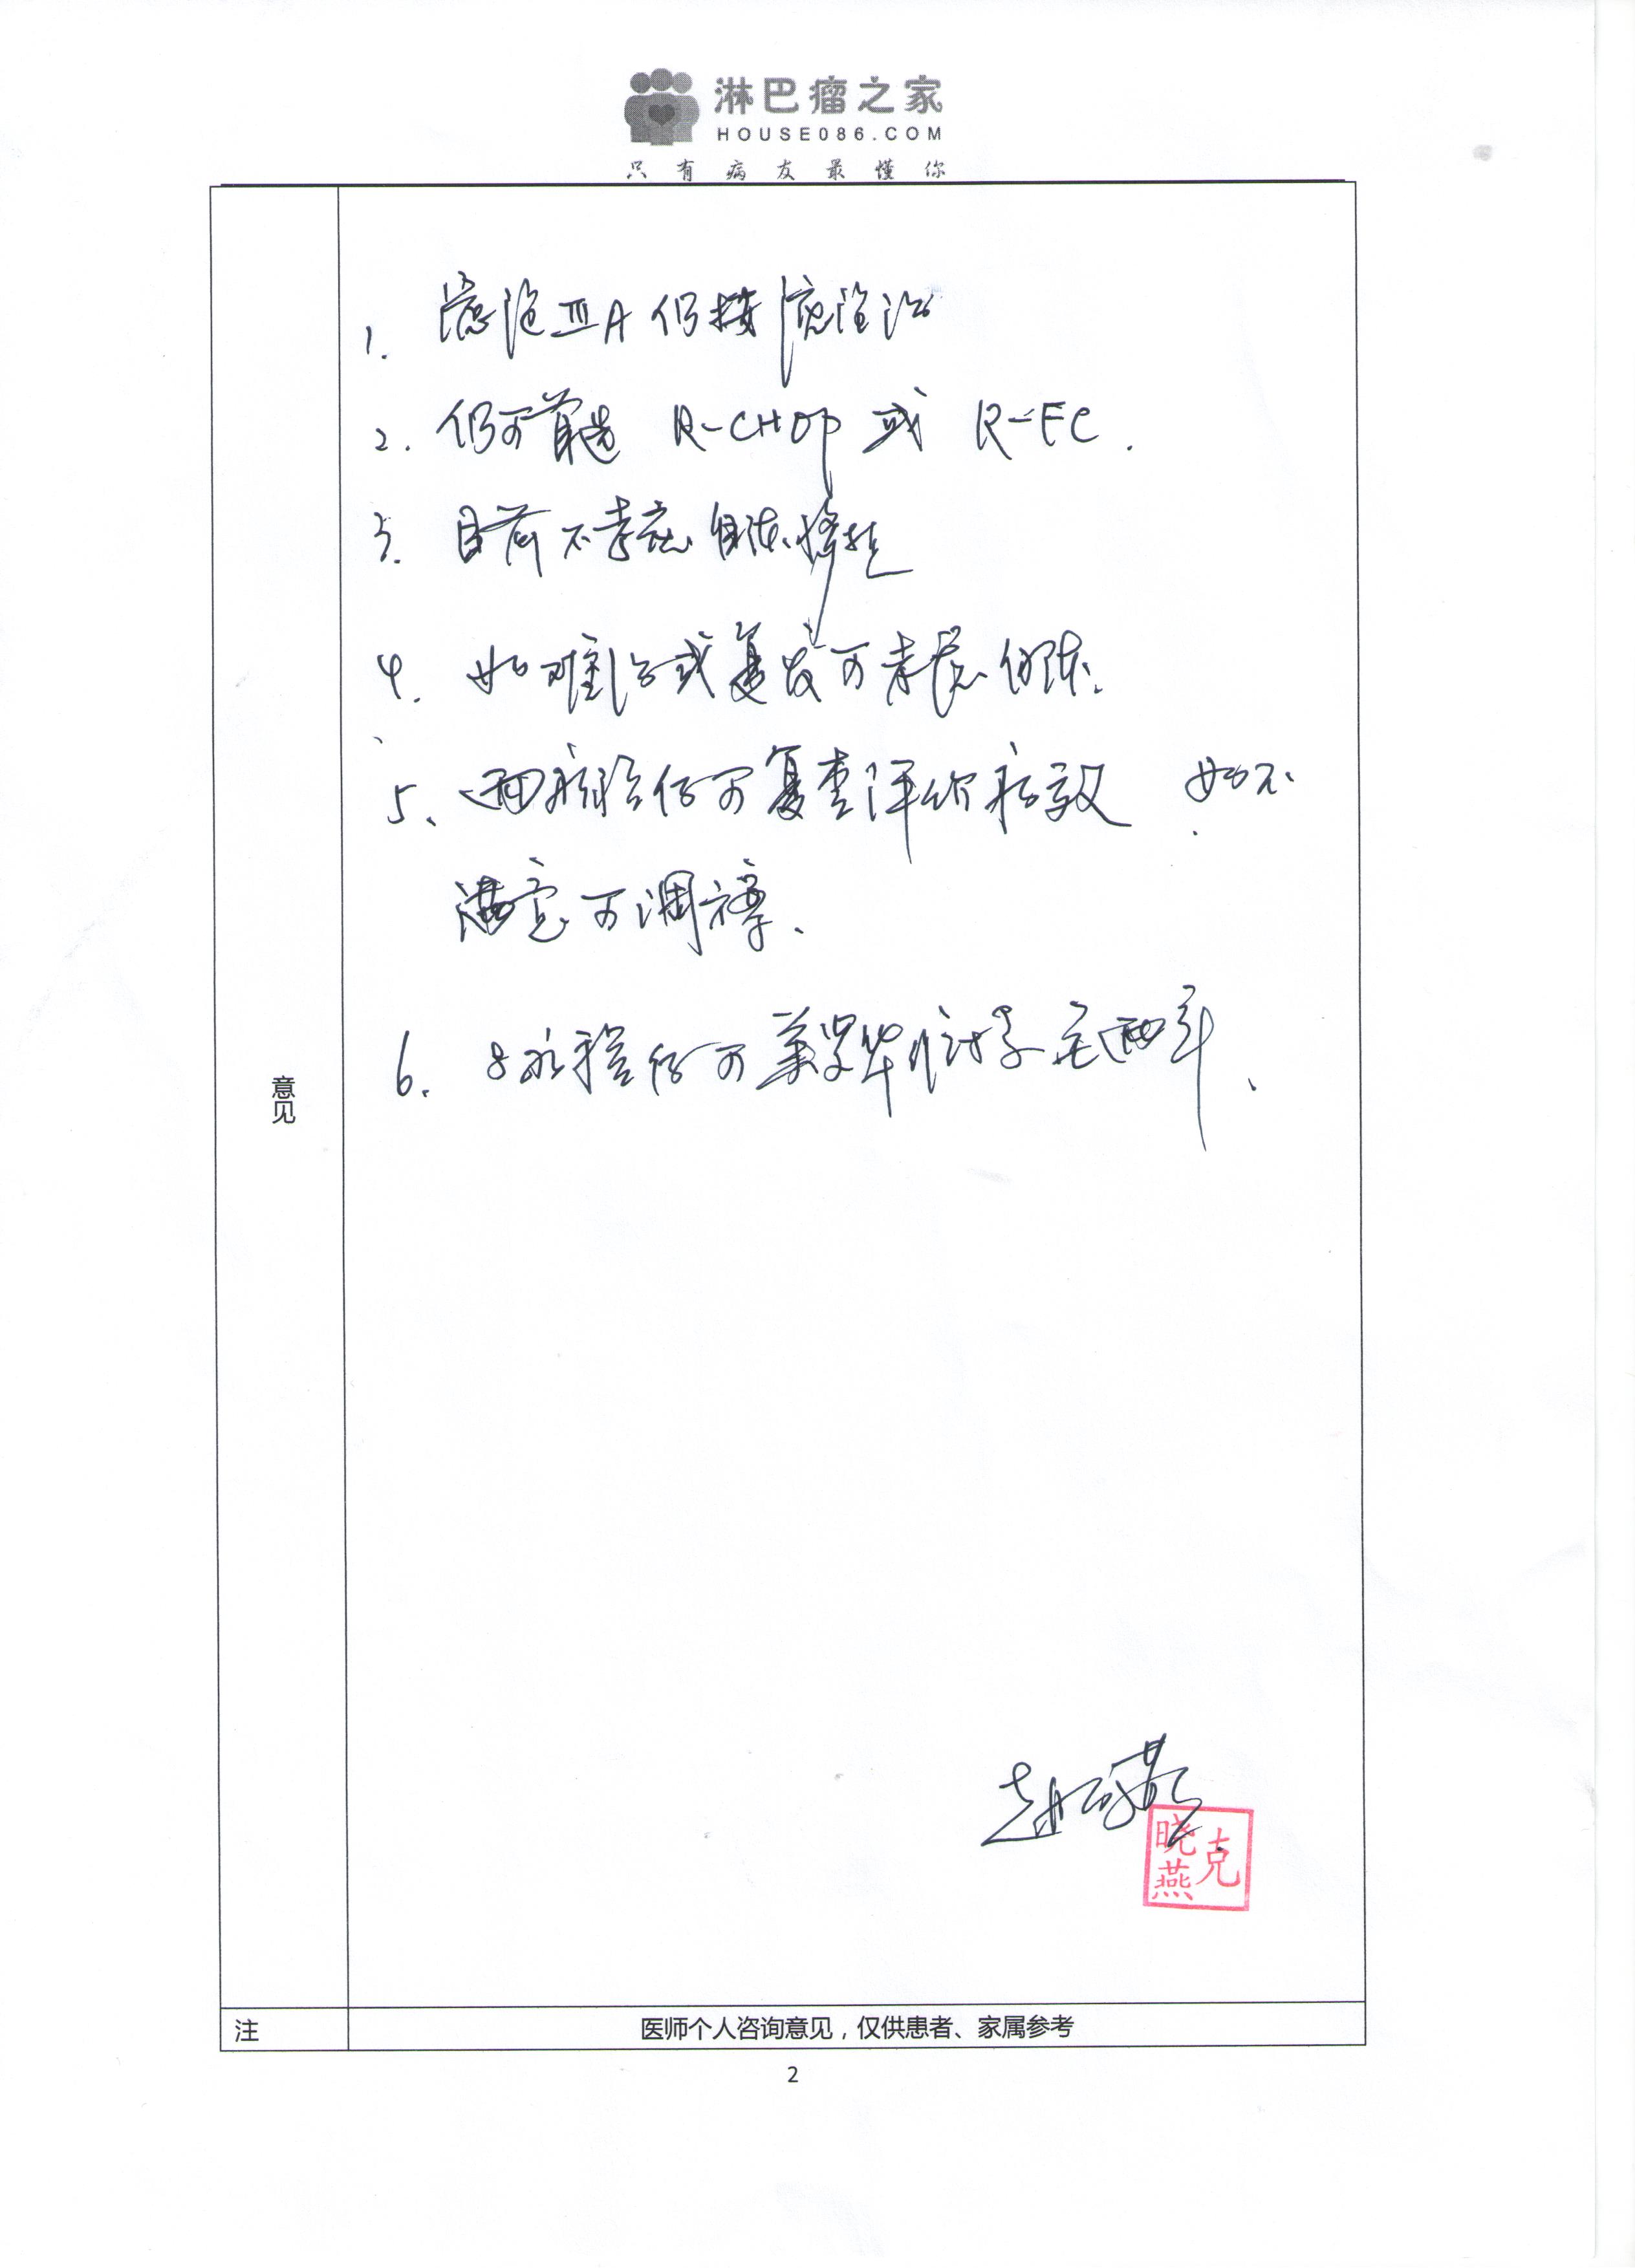 淋巴瘤之家
HOUSE086.COM
只有病友最懂你
1. 滤泡ⅢA仍按滤泡治
2. 仍可首选 R-CHOP 或 R-FC.
3. 目前不考虑自体移植
4. 如难治或复发可考虑自体.
5、两疗程后可复查评价疗效 如不
满意可调方案.
6. 8疗程后可美罗华维持至两年.
意见
克晓燕
注
医师个人咨询意见，仅供患者、家属参考
2